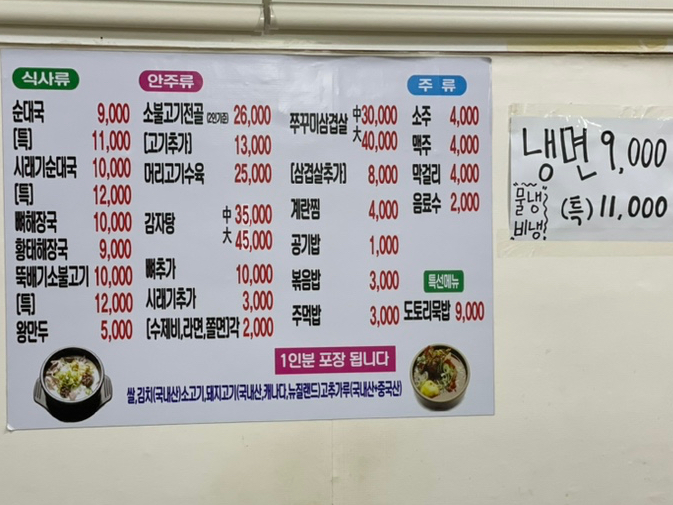 식사류
순대국 9,000
[특] 11,000
시래기순대국 10,000
[특] 12,000
뼈해장국 10,000
황태해장국 9,000
뚝배기소불고기 10,000
[특] 12,000
왕만두 5,000
안주류
소불고기전골 (2인기준) 26,000
[고기추가] 13,000
머리고기수육 25,000
감자탕 中 35,000
大 45,000
뼈추가 10,000
시래기추가 3,000
[수제비,라면,쫄면]각 2,000
쭈꾸미삼겹살 中 30,000
大 40,000
[삼겹살추가] 8,000
계란찜 4,000
공기밥 1,000
볶음밥 3,000
주먹밥 3,000
주 류
소주 4,000
맥주 4,000
막걸리 4,000
음료수 2,000
특선메뉴
도토리묵밥 9,000
1인분 포장 됩니다
쌀,김치(국내산)소고기,돼지고기(국내산,캐나다,뉴질랜드)고추가루(국내산+중국산)
냉면 9,000
물냉
비냉
(특) 11,000